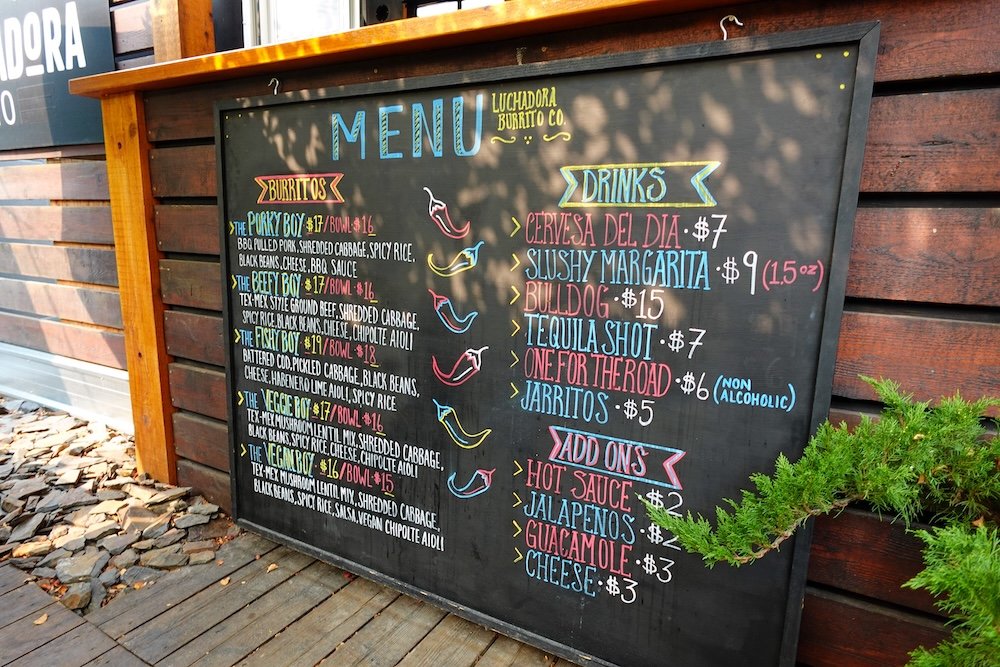 ADORA
O
MENU
LUCHADORA
BURRITO CO.
BURRITOS
THE PORKY BOY $17/BOWL·$16
BBQ PULLED PORK, SHREDDED CABBAGE, SPICY RICE,
BLACK BEANS, CHEESE, BBQ SAUCE
THE BEEFY BOY·$17/BOWL·$16
TEX-MEX STYLE GROUND BEEF, SHREDDED CABBAGE,
SPICY RICE, BLACK BEANS, CHEESE, CHIPOLTE AIOLI
THE FISHY BOY·$19/BOWL·$18
BATTERED COD, PICKLED CABBAGE, BLACK BEANS,
CHEESE, HABENERO LIME AIOLI, SPICY RICE
THE VEGGIE BOY·$17/BOWL·$16
TEX-MEX MUSHROOM LENTIL MIX, SHREDDED CABBAGE,
BLACK BEANS, SPICY RICE, CHEESE, CHIPOLTE AIOLI
THE VEGAN BOY·$16/BOWL·$15
TEX-MEX MUSHROOM LENTIL MIX, SHREDDED CABBAGE,
BLACK BEANS, SPICY RICE, SALSA, VEGAN CHIPOLTE AIOLI
DRINKS
CERVESA DEL DIA·$7
SLUSHY MARGARITA·$9 (1.5 oz)
BULLDOG·$15
TEQUILA SHOT·$7
ONE FOR THE ROAD·$6 (NON ALCOHOLIC)
JARRITOS·$5
ADD ONS
HOT SAUCE·$2
JALAPEÑOS·$2
GUACAMOLE·$3
CHEESE·$3